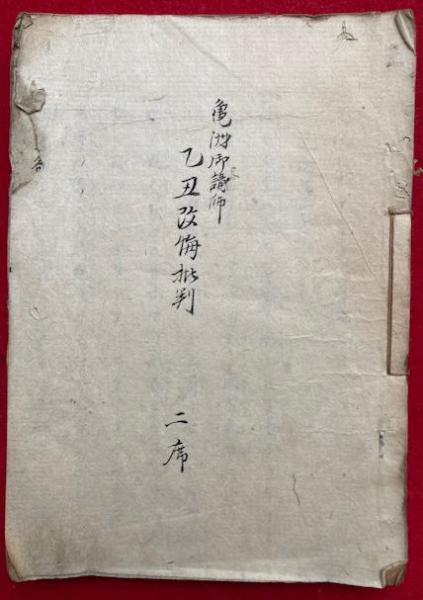 亀洲御講師
乙丑改悔批判
二席